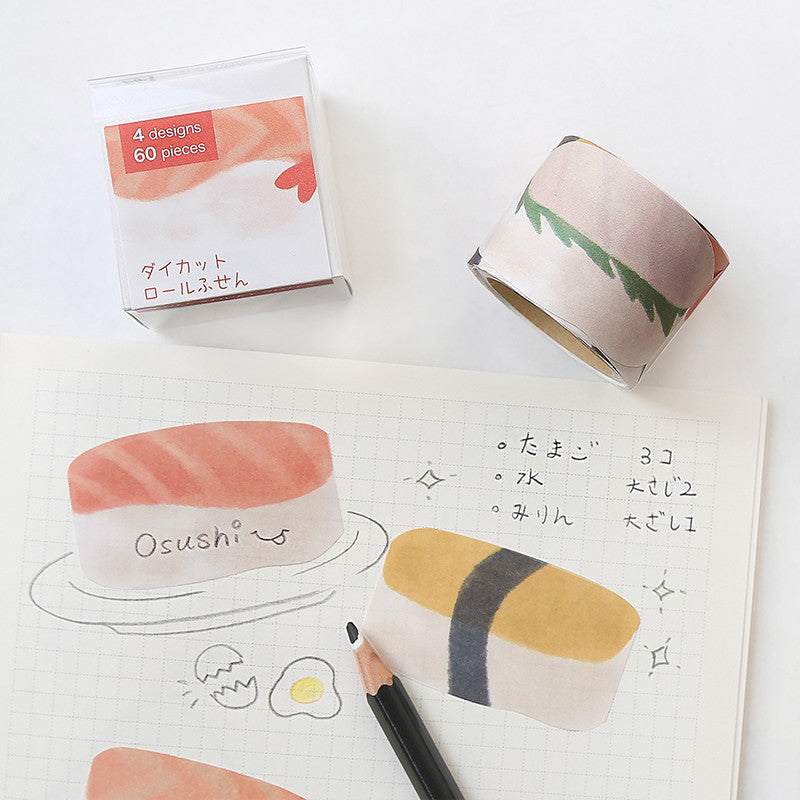 4 designs
60 pieces
ダイカット
ロールふせん
Osushi
• たまご 3コ
• 水 大さじ2
• みりん 大さじ1